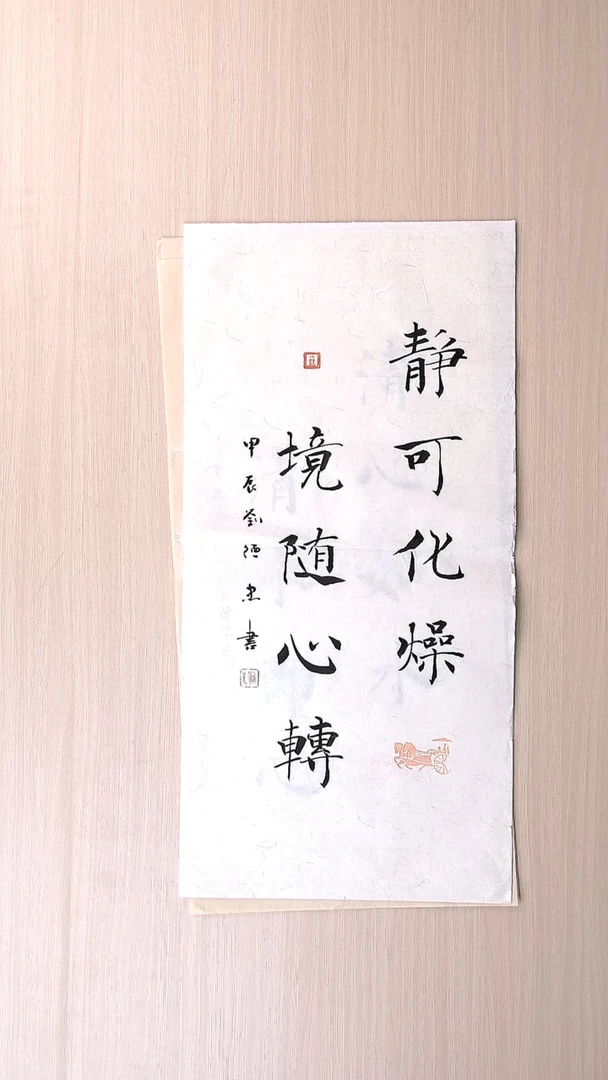 静可化燥
境随心轉
甲辰劉恒忠書